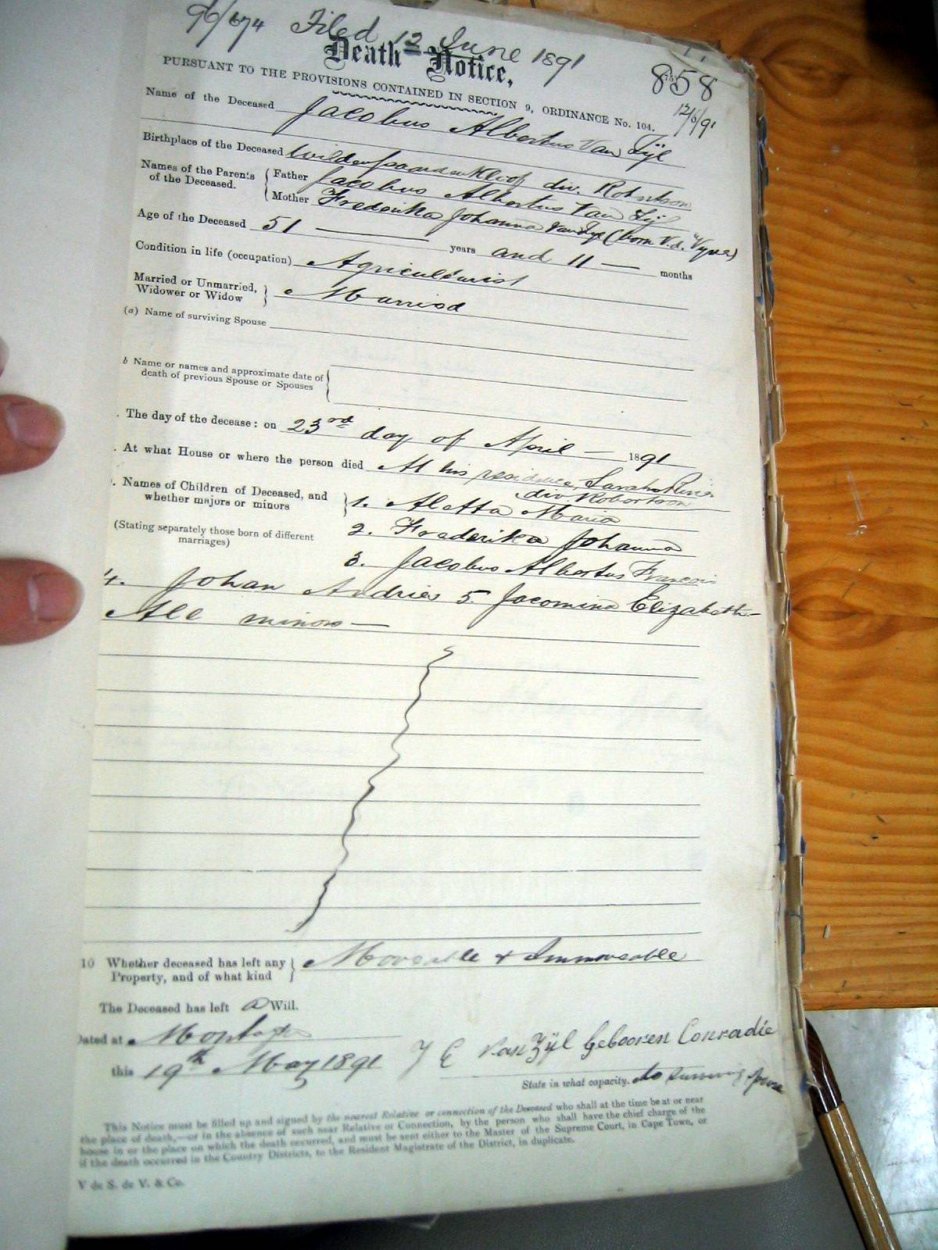 Filed 12 June 1891
Death Notice,
858
PURSUANT TO THE PROVISIONS CONTAINED IN SECTION 9, ORDINANCE No. 104.
12/6/91
Name of the Deceased Jacobus Albertus Van Zÿl
Birthplace of the Deceased Wildepaardenkloof div. Robertson
Names of the Parents of the Deceased. { Father Jacobus Albertus Van Zÿl
Mother Frederika Johanna Van Zyl (born V.d. Vyver)
Age of the Deceased 51 years and 11 months
Condition in life (occupation) Agriculturist
Married or Unmarried, Widower or Widow } Married
(a) Name of surviving Spouse
b Name or names and approximate date of death of previous Spouse or Spouses {
The day of the decease: on 23rd day of April 1891
At what House or where the person died At his residence
div. Robertson
Names of Children of Deceased, and whether majors or minors } 1. Aletta Maria
(Stating separately those born of different marriages)
2. Frederika Johanna
3. Jacobus Albertus Francois
4. Johan Andries 5. Jacomina Elizabeth
All minors
10 Whether deceased has left any Property, and of what kind } Moveable & Immoveable
The Deceased has left a Will.
Dated at Montagu
this 19th May 1891 J E Van Zÿl Gebooren Conradie
State in what capacity. surviving spouse
This Notice must be filled up and signed by the nearest Relative or connection of the Deceased who shall at the time be at or near
the place of death,—or in the absence of such near Relative or Connection, by the person who shall have the chief charge of the
house in or the place on which the death occurred, and must be sent either to the Master of the Supreme Court, in Cape Town, or
if the death occurred in the Country Districts, to the Resident Magistrate of the District, in duplicate.
V de S. de V. & Co.